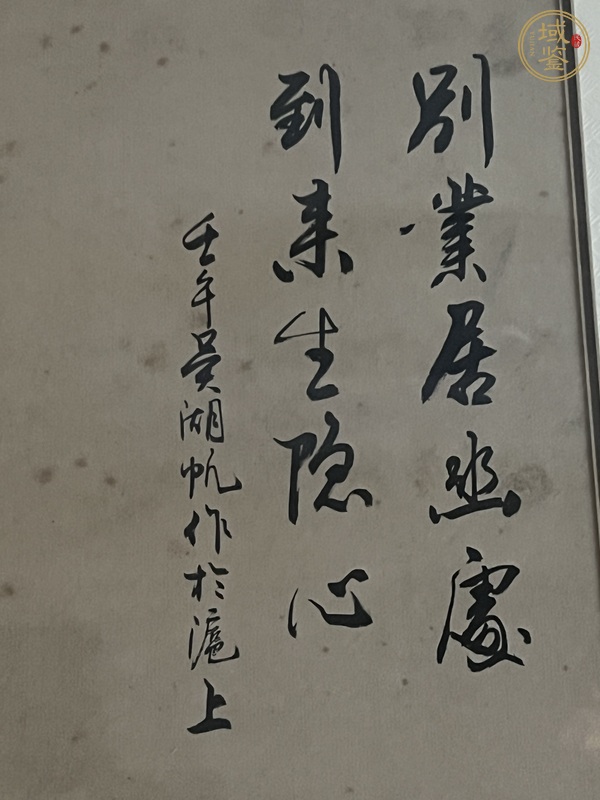 別業居幽處
到来生隐心
壬午吳湖帆作於滬上
域鉴